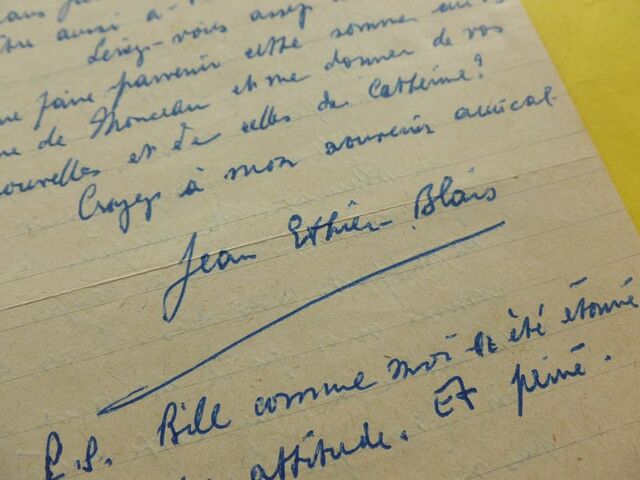 aussi à
Seriez-vous assez
faire parvenir cette somme au
de Monceau et me donner de vos
nouvelles et de celles de Catherine?
Croyez à mon souvenir amical.
Jean Ethier-Blais
P.S. Bill comme moi a été étonné
attitude. Et peiné.